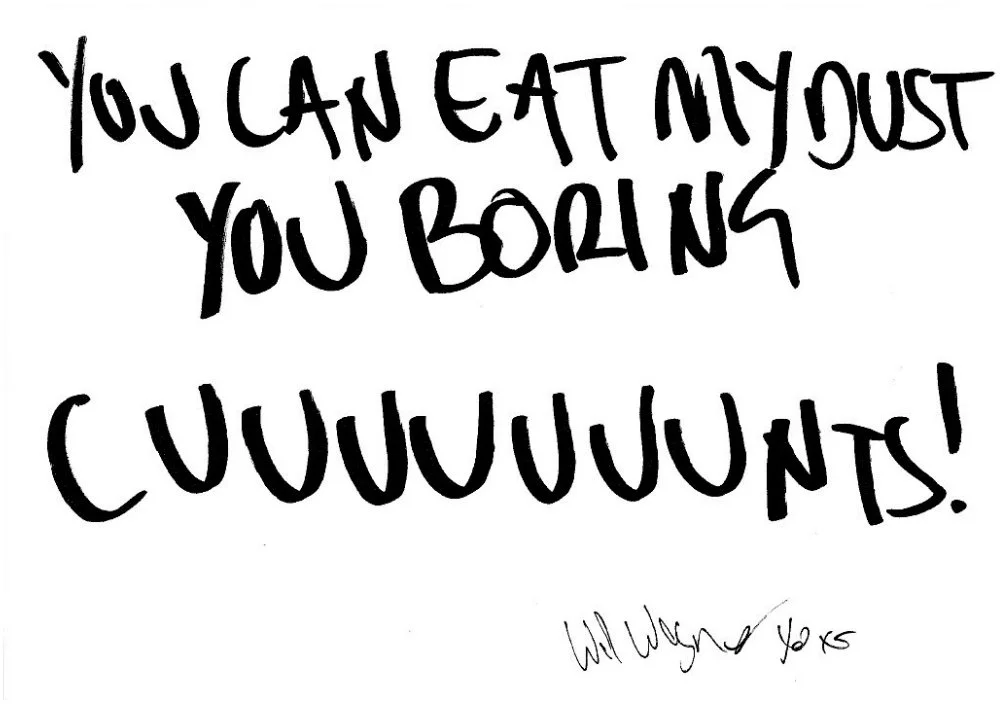 YOU CAN EAT MY DUST
YOU BORING
CUUUUUUUNTS!
Will Wagner